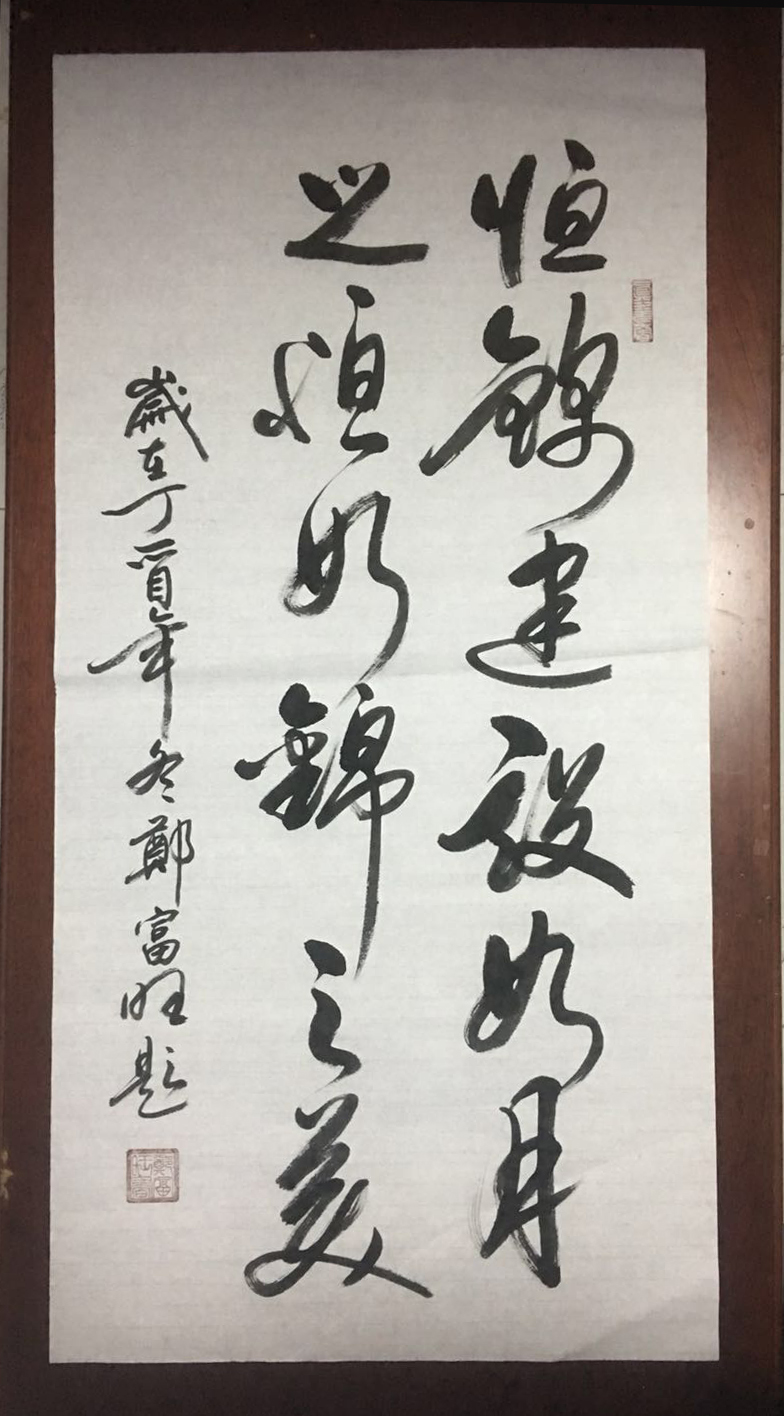 恒錦建設如月
之恒如錦之美
歲在丁酉年冬鄭富旺題